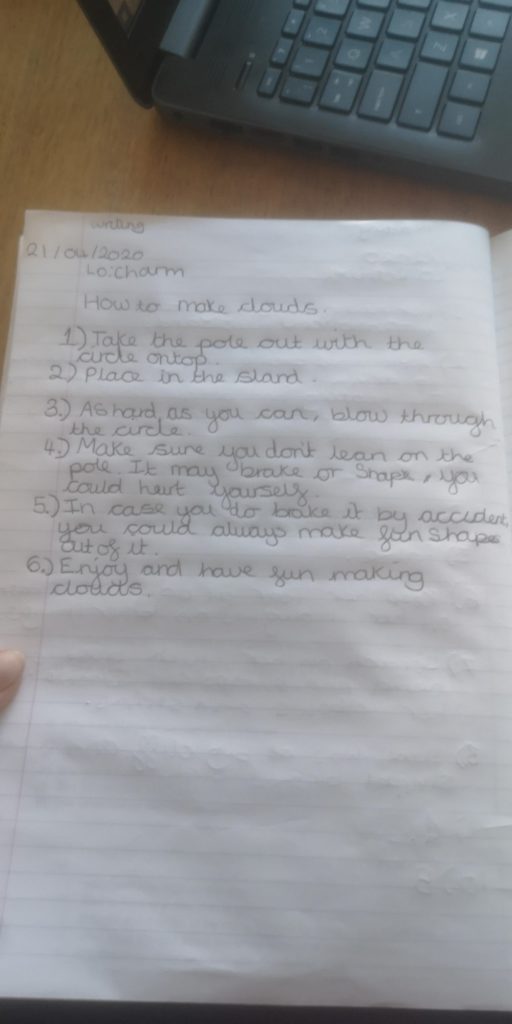 writing
21/04/2020
Lo:charm
How to make clouds.
1.) Take the pole out with the
circle ontop.
2.) Place in the stand.
3.) As hard as you can, blow through
the circle.
4.) Make sure you don't lean on the
pole. It may brake or snape, you
could hurt yourself.
5.) In case you do brake it by accident,
you could always make fun shapes
out of it.
6.) Enjoy and have fun making
clouds.